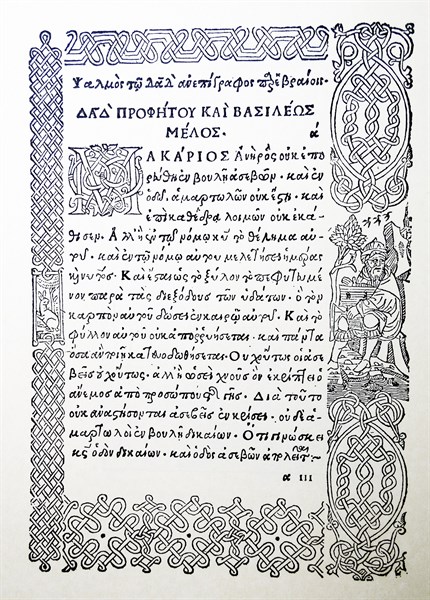 Ψαλμὸς τῷ Δαδ ἀνεπίγραφος παρ' ἑβραίοις·
ΔΑΔ ΠΡΟΦΗΤΟΥ ΚΑΙ ΒΑΣΙΛΕΩΣ
ΜΕΛΟΣ· ά
ΜΑΚΑΡΙΟΣ ἀνὴρ ὃς οὐκ ἐπο
ρεύθη ἐν βουλῇ ἀσεβῶν· καὶ ἐν
ὁδῷ ἁμαρτωλῶν οὐκ ἔστη· καὶ
ἐπὶ καθέδρᾳ λοιμῶν οὐκ ἐκά
θισεν. Ἀλλ' ἢ ἐν τῷ νόμῳ κυ τὸ θέλημα αὐ
τοῦ, καὶ ἐν τῷ νόμῳ αὐτοῦ μελετήσει ἡμέρας
καὶ νυκτός· Καὶ ἔσται ὡς τὸ ξύλον τὸ πεφυτευμέ
νον παρὰ τὰς διεξόδους τῶν ὑδάτων· ὃ τὸν
καρπὸν αὐτοῦ δώσει ἐν καιρῷ αὐτοῦ. Καὶ τὸ
φύλλον αὐτοῦ οὐκ ἀπορρυήσεται· καὶ πάντα
ὅσα ἂν ποιῇ κατευοδωθήσεται. Οὐχ οὕτως οἱ ἀσε
βεῖς οὐχ οὕτως, ἀλλ' ἢ ὡσεὶ χνοῦς ὃν ἐκρίπτει ὁ
ἄνεμος ἀπὸ προσώπου τῆς γῆς. Διὰ τοῦτο
οὐκ ἀναστήσονται ἀσεβεῖς ἐν κρίσει· οὐδὲ ἁ
μαρτωλοὶ ἐν βουλῇ δικαίων. Ὅτι γινώσκει
κς ὁδὸν δικαίων· καὶ ὁδὸς ἀσεβῶν ἀπολεῖται·
α III